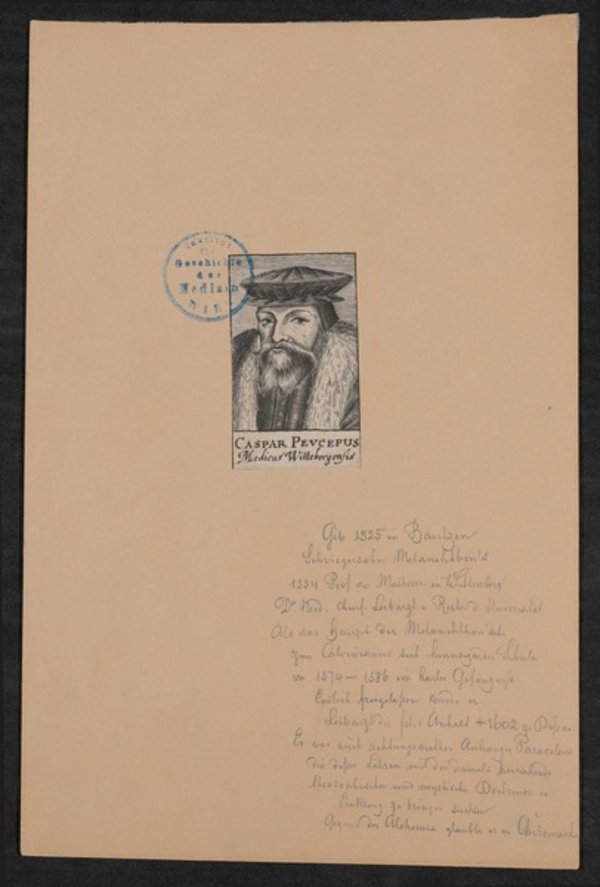 Institut
Geschichte
der
Medizin
WIEN
CASPAR PEVCEPUS
Medicus Wittebergensis
Geb 1525 in Bautzen
Schwiegersohn Melanchthon's
1554 Prof der Mathem in Wittenberg
Dr Med. Leibarzt u Rector d Universität
Als das Haupt der Melanchthon'schen
zum Calvinismus sich hinneigenden Schule
von 1574 – 1586 in harter Gefangensch.
Endlich freigelassen wurde er
Leibarzt des v Anhalt + 1602 zu Dessau
Es war auch Anhänger Paracelsus
die dessen Lehren mit der damals herrschenden
theosophischen und mystische Doctrinen in
Einklang zu bringen suchten
Gegner der Alchemie glaubte er an Chiromantie